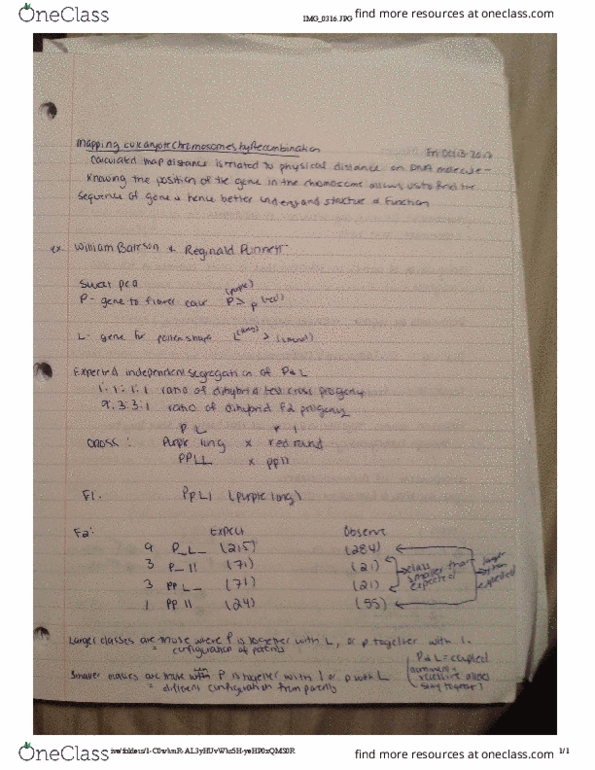 OneClass
IMG_0316.JPG
find more resources at oneclass.com
find more resources at oneclass.com
Mapping eukaryote chromosomes by Recombination
Fri Oct 13-2017
Calculated map distance is related to physical distance on DNA molecule-
Knowing the position of the gene in the chromosome allows us to find the
sequence of gene & hence better understand structure & function
ex William Bateson & Reginald Punnett
Sweet pea
(purple)
P- gene to flower colour P > p (red)
L- gene for pollen shape L (long) > l (round)
Expected independent segregation of P & L
1:1:1:1 ratio of dihybrid test cross progeny
9:3:3:1 ratio of dihybrid F2 progeny
P L
cross: Purple long x red round
PPLL x ppll
F1. PpLl (purple long)
F2: Expect Observe
9 P_L_ (215) (284)
3 P_ll (71) (21)
3 ppL_ (71) (21)
1 ppll (24) (55)
class smaller than expected
larger than expected
Larger classes are those where P is together with L, or p together with l.
= configuration of parents
Smaller classes are those when P is together with l or p with L
= different configuration from parents
P & L = coupled
recessive alleles
stay together
OneClass
1/1
find more resources at oneclass.com
find more resources at oneclass.com